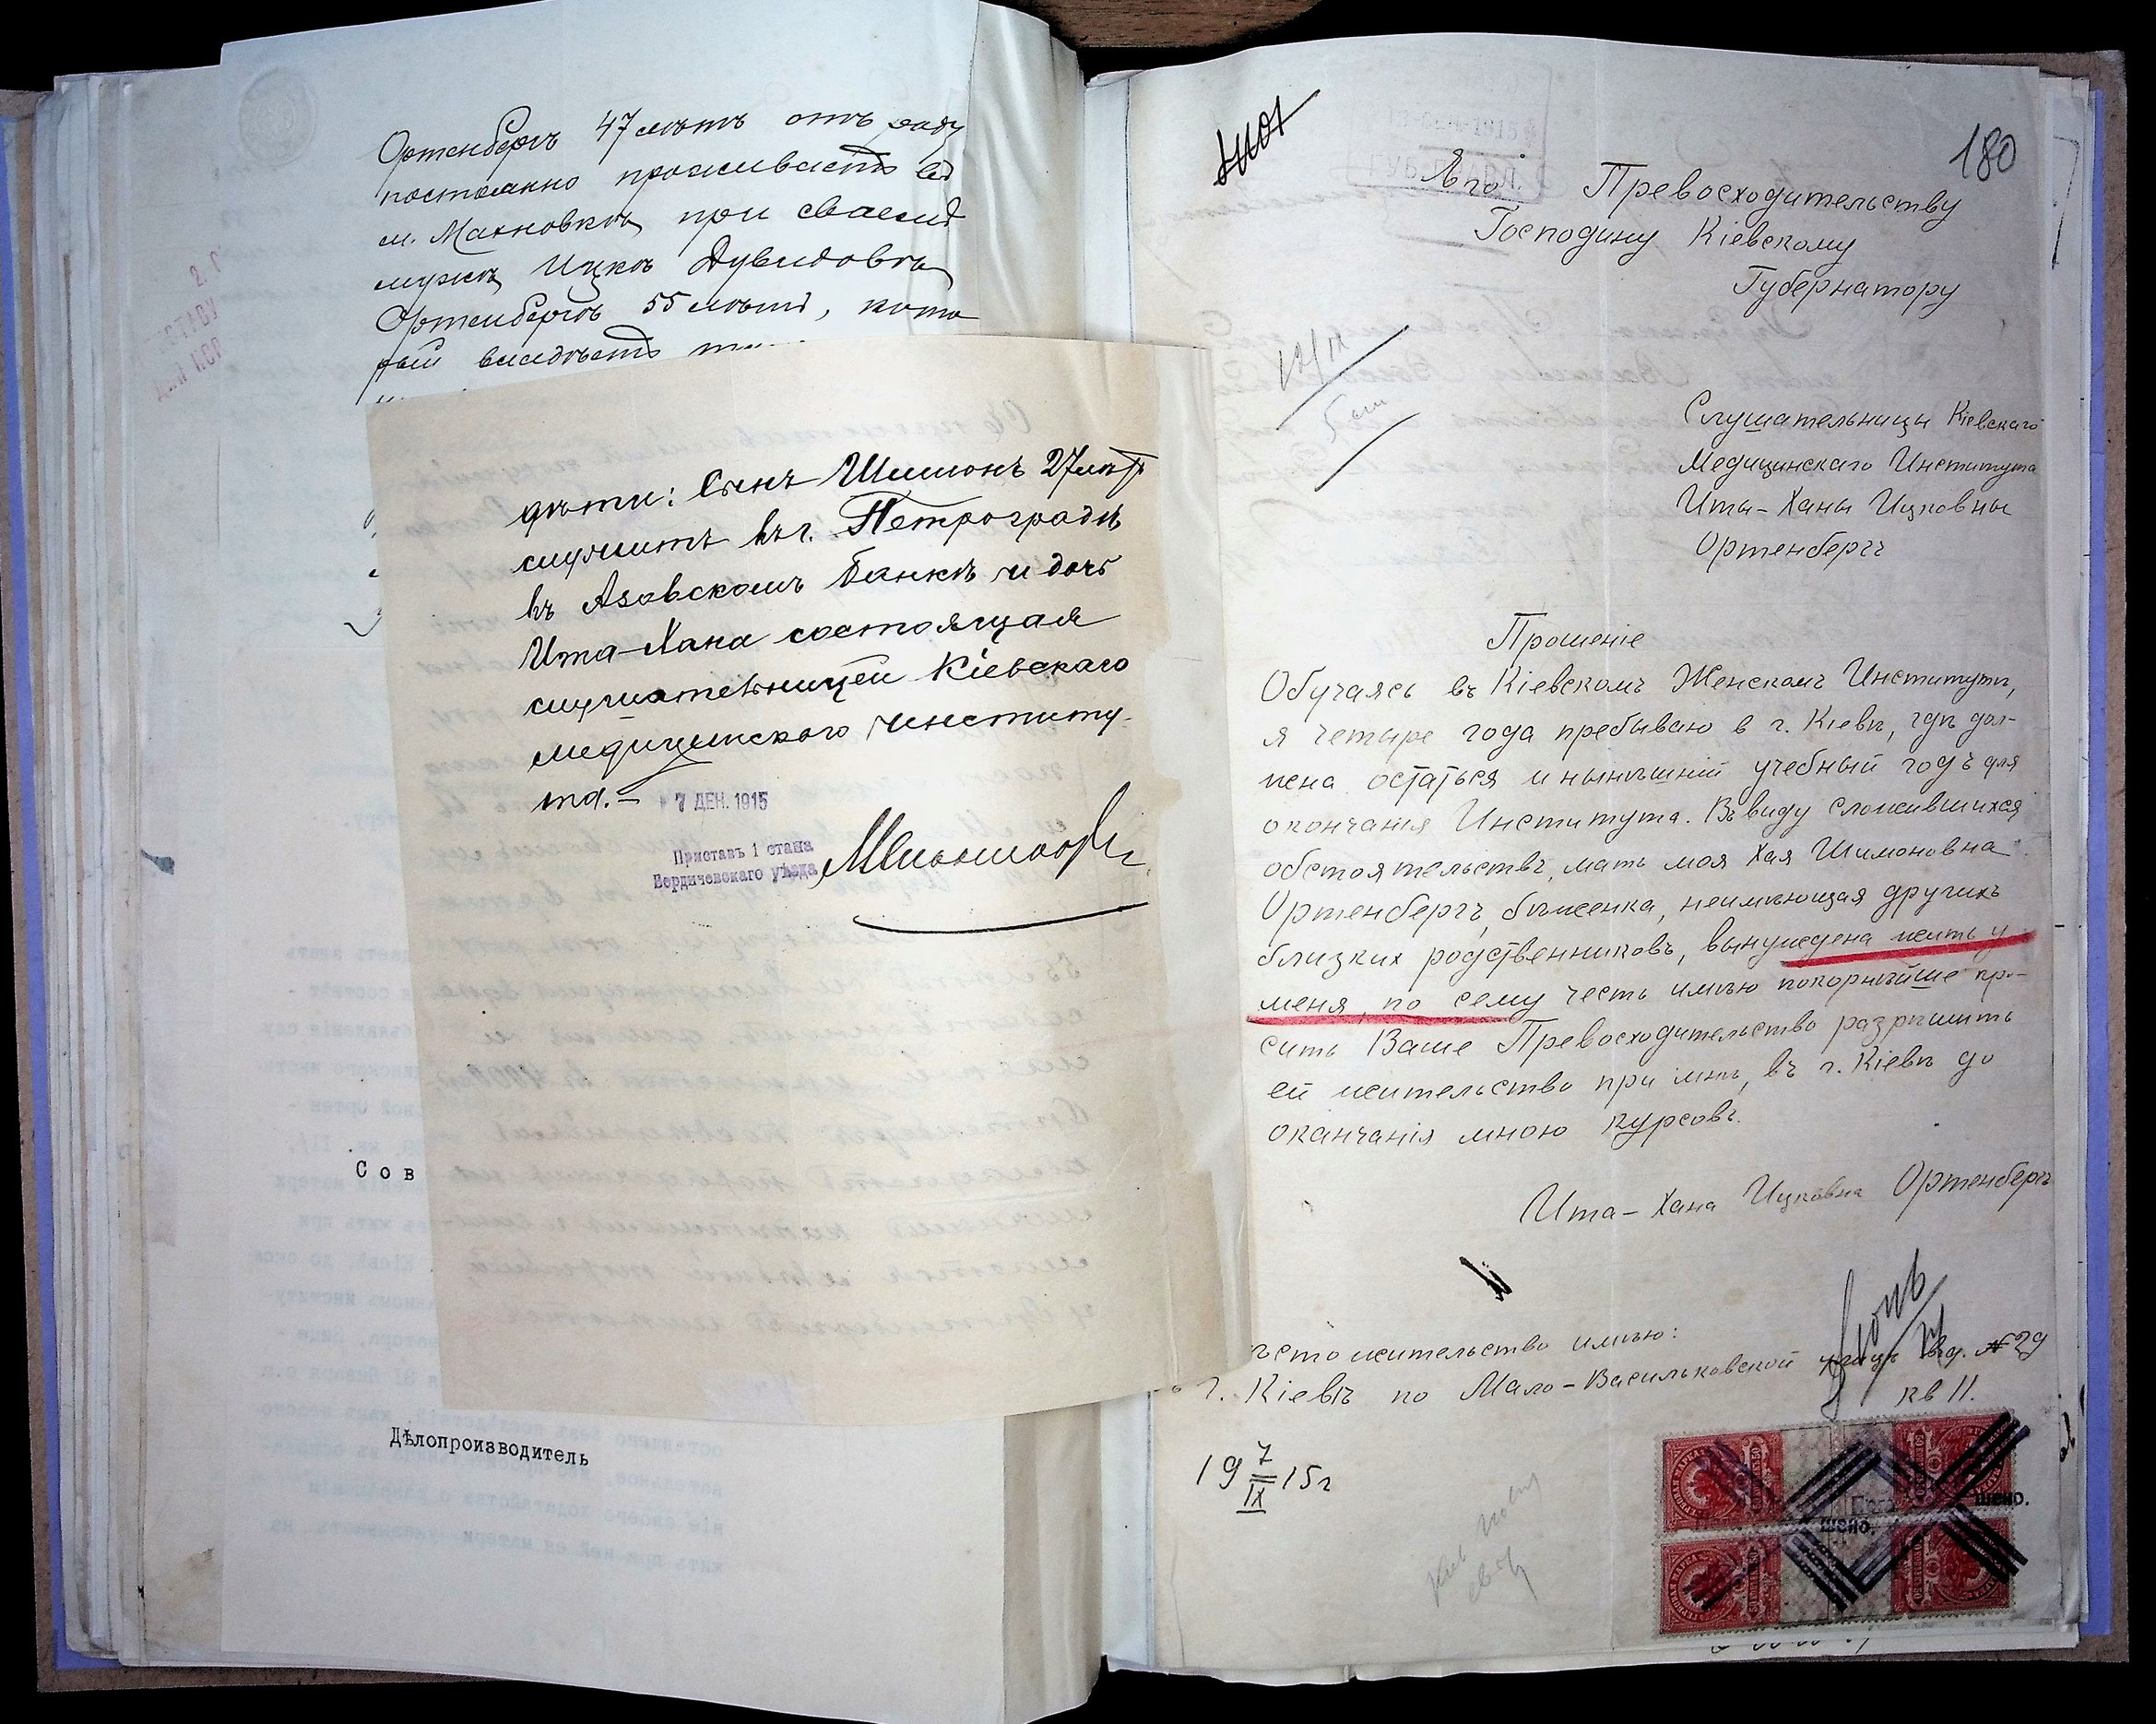 Ортенбергъ 47 лѣтъ отъ роду
постоянно проживаетъ въ
м. Махновкѣ, при своемъ
мужѣ Ицкѣ Дувидовѣ
Ортенбергѣ 55 лѣтъ, кото
рый владѣетъ
дѣти: Сынъ Шимонъ 27 лѣтъ
служитъ въ г. Петроградѣ
въ Азовскомъ банкѣ и дочь
Ита-Хана состоящая
слушательницей Кіевскаго
медицинскаго институ-
та.-
7 ДЕК. 1915
Приставъ 1 стана
Бердичевскаго уѣзда
Сов
Дѣлопроизводитель
180
Его Превосходительству
Господину Кіевскому
Губернатору
Слушательницы Кіевскаго
Медицинскаго Института
Иты-Ханы Ицковны
Ортенбергъ
Прошеніе
Обучаясь въ Кіевскомъ Женскомъ Институтѣ,
я четыре года пребываю в г. Кіевѣ, гдѣ дол-
жна остаться и нынѣшній учебный годъ для
окончанія Института. Въ виду сложившихся
обстоятельствъ, мать моя Хая Шимоновна
Ортенбергъ, бѣженка, неимѣющая другихъ
близких родственниковъ, вынуждена жить у
меня, по сему честь имѣю покорнѣйше про-
сить Ваше Превосходительство разрѣшить
ей жительство при мнѣ, въ г. Кіевѣ до
окончанія мною курсовъ.
Ита-Хана Ицковна Ортенбергъ
жительство имѣю:
г. Кіевъ по Мало-Васильковской №29
кв 11.
19 7/IX 15 г